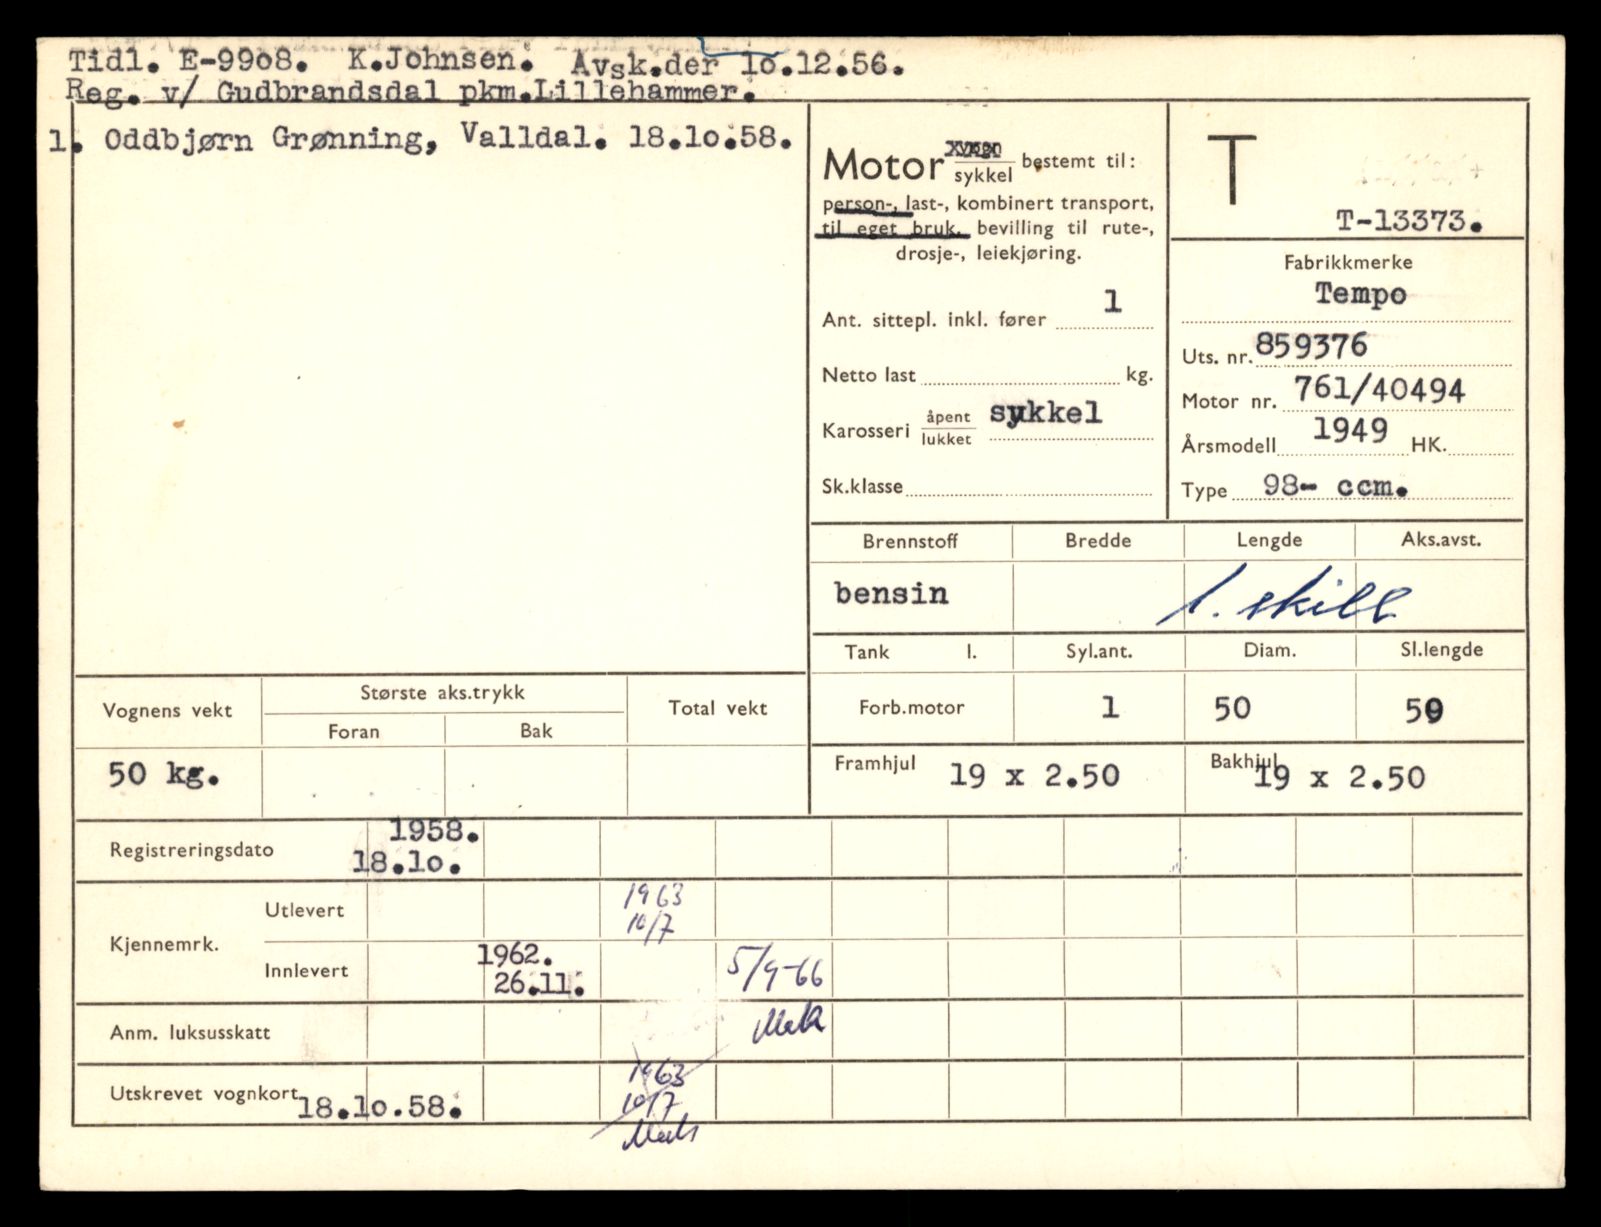 Tidl. E-9908. K.Johnsen. Avsk.der 10.12.56.
Reg. v/ Gudbrandsdal pkm.Lillehammer.
1. Oddbjørn Grønning, Valldal. 18.10.58.
Motor sykkel bestemt til:
person-, last-, kombinert transport,
til eget bruk, bevilling til rute-,
drosje-, leiekjøring.
Ant. sittepl. inkl. fører 1
Netto last kg.
Karosseri åpent lukket sykkel
Sk.klasse
T
T-13373.
Fabrikkmerke
Tempo
Uts. nr. 859376
Motor nr. 761/40494
Årsmodell 1949 HK.
Type 98- ccm.
Brennstoff Bredde Lengde Aks.avst.
bensin 1. skill
Tank l. Syl.ant. Diam. Sl.lengde
Forb.motor 1 50 50
Framhjul 19 x 2.50 Bakhjul 19 x 2.50
Vognens vekt Største aks.trykk Total vekt
Foran Bak
50 kg.
Registreringsdato 1958.
18.10.
Kjennemrk. Utlevert 1963
10/7
Innlevert 1962. 5/9-66
26.11.
Anm. luksusskatt
Utskrevet vognkort 18.10.58. 1963
10/7